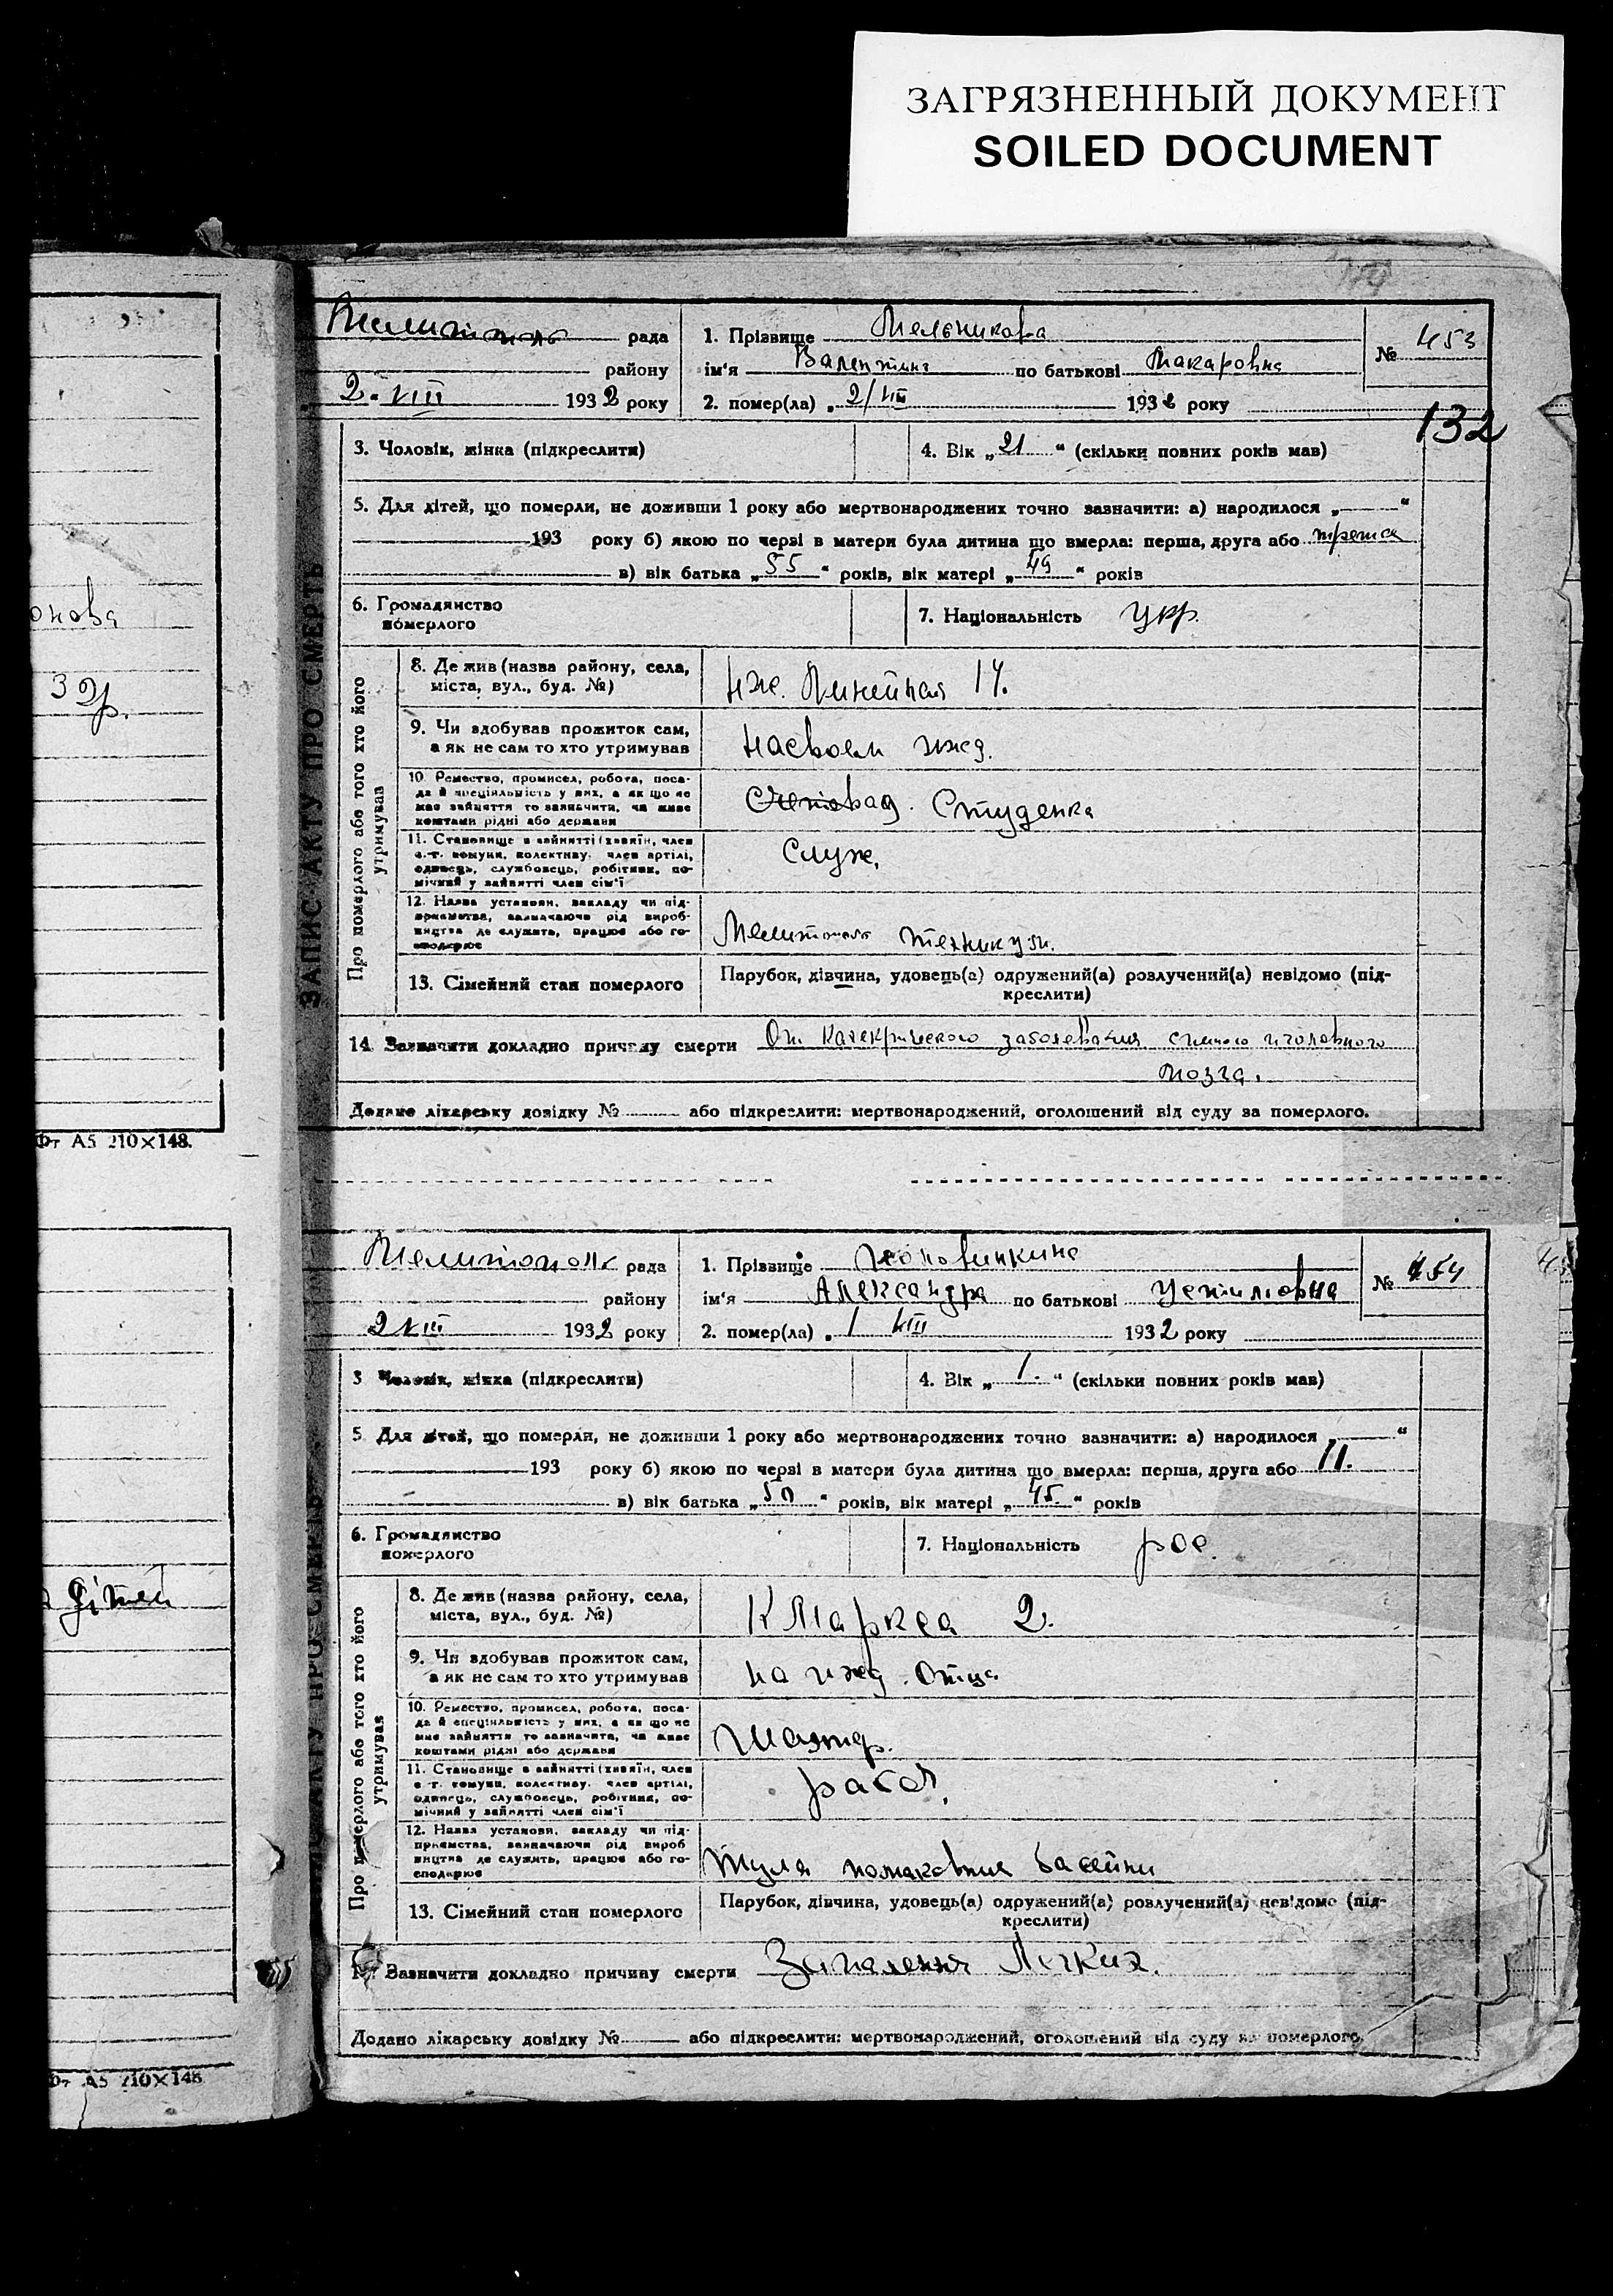 ЗАГРЯЗНЕННЫЙ ДОКУМЕНТ
SOILED DOCUMENT
онова
32р.
дітей
Фт А5 210×148.
А5 210×148
ЗАПИС АКТУ ПРО СМЕРТЬ
Мелитополь рада
району
2. VIII 1932 року
1. Прізвище Мельникова
ім'я Валентина по батькові Макаровна
2. помер(ла) „ 2/VIII 1932 року
№ 453
132
3. Чоловік, жінка (підкреслити)
4. Вік „21“ (скільки повних років мав)
5. Для дітей, що померли, не доживши 1 року або мертвонароджених точно зазначити: а) народилося „ “
193 року б) якою по черзі в матери була дитина що вмерла: перша, друга або третя
в) вік батька „55“ років, вік матері „49“ років
6. Громадянство
померлого
7. Національність укр.
Про померлого або того хто його
утримував
8. Де жив (назва району, села,
міста, вул., буд. №)
Линейная 14.
9. Чи здобував прожиток сам,
а як не сам то хто утримував
на своем ижд.
10. Ремество, промисел, робота, поса-
да й спеціяльність у них, а як що не
мав зайняття то зазначити, чи живе
коштами рідні або держави
Студенка
11. Становище в зайнятті (хазяїн, член
с.-г. комуни, колективу, член артілі,
одинець, службовець, робітник, по-
мічний у зайнятті член сім'ї
Служ.
12. Назва установи, закладу чи під-
приємства, зазначаючи рід вироб-
ництва де служить, працює або го-
сподарює
Мелитополь техникум.
13. Сімейний стан померлого
Парубок, дівчина, удовець(а) одружений(а) розлучений(а) невідомо (під-
креслити)
14. Зазначити докладно причину смерти От заболевания спинного и головного
мозга.
Додано лікарську довідку № або підкреслити: мертвонароджений, оголошений від суду за померлого.
Мелитополь рада
району
2 VIII 1932 року
1. Прізвище
ім'я Александра по батькові
2. помер(ла) „ 1 VIII 1932 року
№ 454
3 Чоловік, жінка (підкреслити)
4. Вік „1.“ (скільки повних років мав)
5 Для дітей, що померли, не доживши 1 року або мертвонароджених точно зазначити: а) народилося „ “
193 року б) якою по черзі в матери була дитина що вмерла: перша, друга або 11.
в) вік батька „50“ років, вік матері „45.“ років
6. Громадянство
померлого
7. Національність рос.
Про померлого або того хто його
утримував
8. Де жив (назва району, села,
міста, вул., буд. №)
К Маркса 2.
9. Чи здобував прожиток сам,
а як не сам то хто утримував
на ижд. отца
10. Ремество, промисел, робота, поса-
да й спеціяльність у них, а як що не
має зайняття то зазначити, чи живе
коштами рідні або держави
Шахтер.
11. Становище в зайнятті (хазяїн, член
с.-г. комуни, колективу, член артілі,
одинець, службовець, робітник, по-
мічний у зайнятті член сім'ї
рабоч.
12. Назва установи, закладу чи під-
приємства, зазначаючи рід вироб
ництва де служить, працює або го-
сподарює
Тула басейни
13. Сімейний стан померлого
Парубок, дівчина, удовець(а) одружений(а) розлучений(а) невідомо (під-
креслити)
Зазначити докладно причину смерти Запалення Легких.
Додано лікарську довідку № або підкреслити: мертвонароджений, оголошений від суду за померлого.